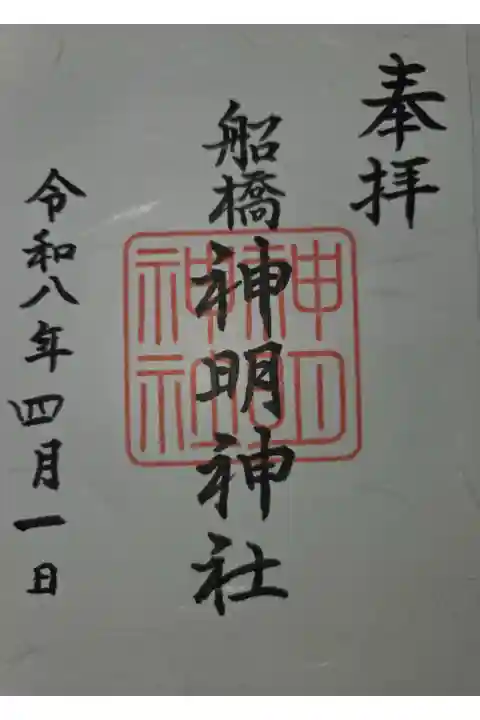 奉拝
船橋
神明神社
神明
神社
令和八年四月一日